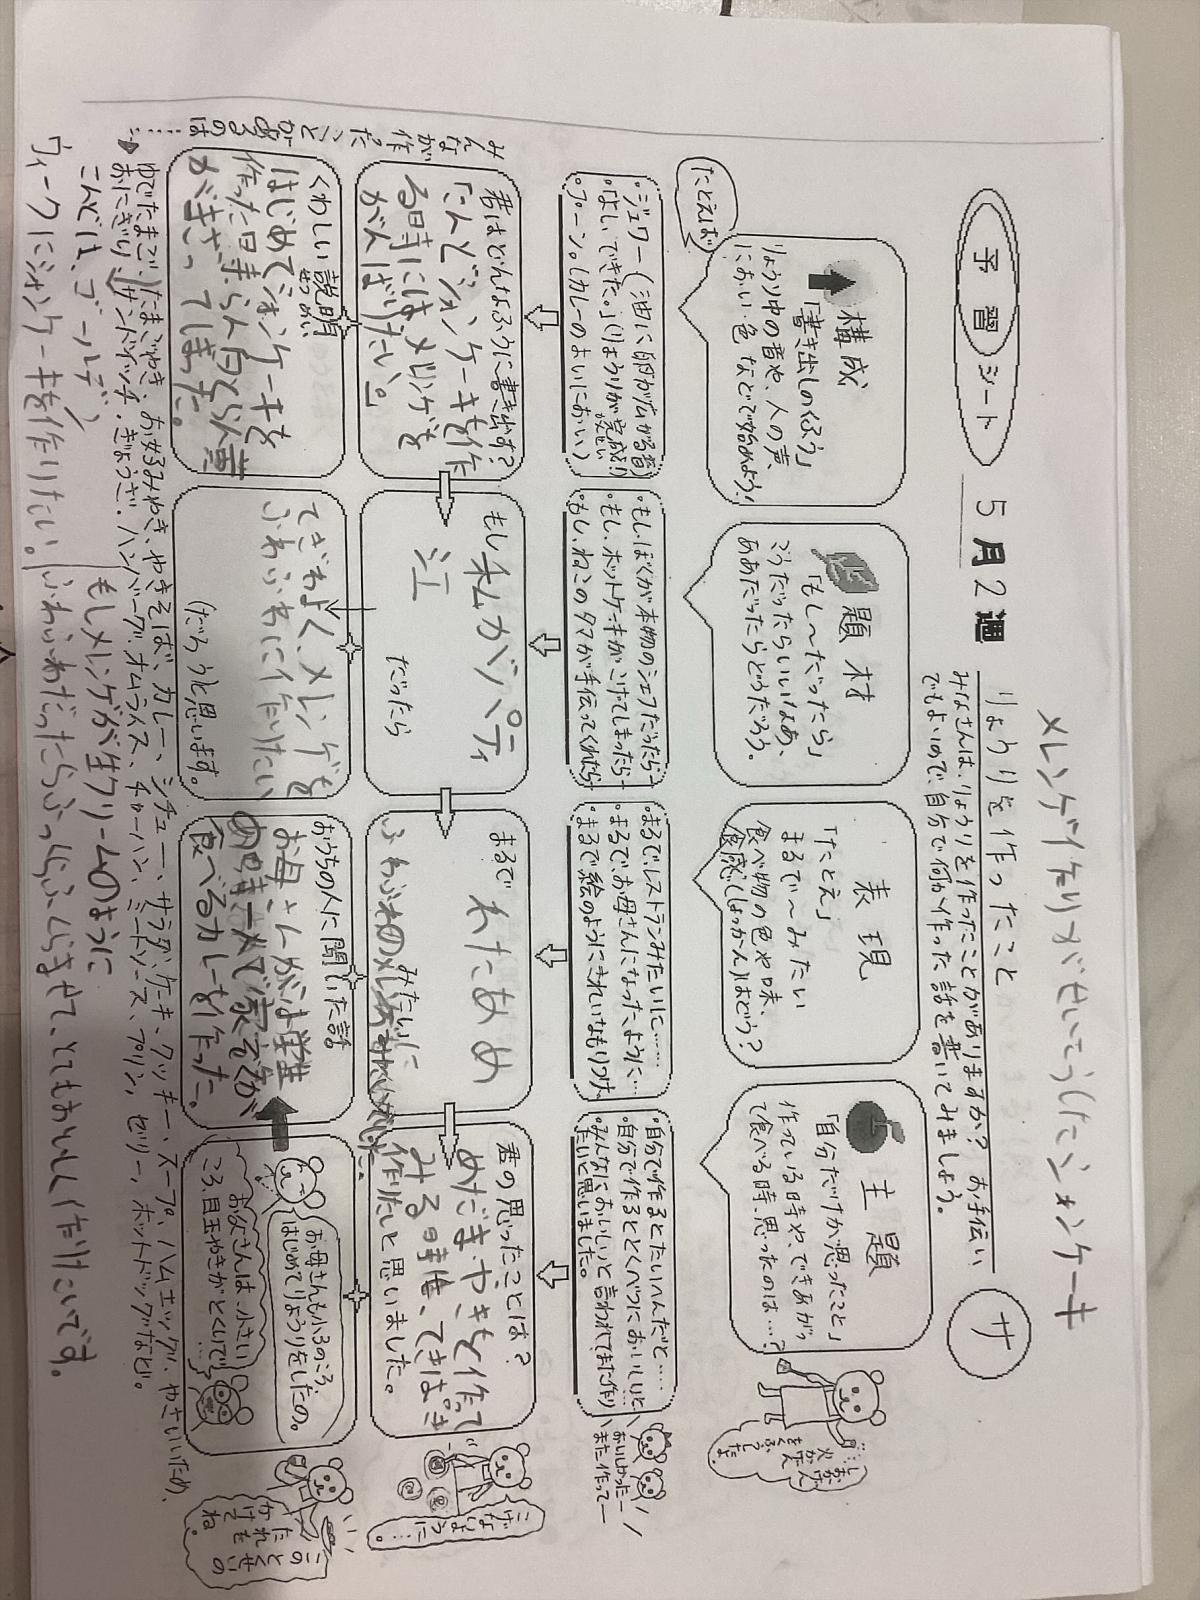 メレンゲ作りがせいこうしたシフォンケーキ
予習シート
5月2週
りょうりを作ったこと
サ
みなさんは、りょうりを作ったことがありますか？お手伝い
でもよいので、自分で何か作った話を書いてみましょう。
構成
「書き出しのくふう」
りょうり中の音や、人の声、
におい・色などで始めよう！
たとえば
題材
「もし～だったら」
こうだったらいいなあ、
ああだったらどうだろう。
表現
「たとえ」
まるで～みたい
食べ物の色や味、
食感(しょっかん)はどう？
主題
「自分だけが思ったこと」
作っている時や、できあがっ
て食べる時、思ったのは…？
・ジュワー（油に卵が広がる音）
・「よし、できた。」（りょうりが完成！）
かんせい
・プーン。（カレーのよいにおい）
・もし、ぼくが本物のシェフだったら…
・もし、ホットケーキがこげてしまったら…
・もし、ねこのタマが手伝ってくれたら…
・まるで、レストランみたいに……
・まるで、お母さんになったように…
・まるで絵のようにきれいなもりつけ
・自分で作るとたいへんだと……
・自分で作るととくべつにおいしいと
・みんなにおいしいと言われてまた作り
たいと思いました。
おいしかったー
また作ってー
君はどんなふうに書き出す？
「こんどシフォンケーキを作
る時にはメレンゲを
がんばりたい。」
もし私がパティ
シエ
だったら
まるで
わたあめ
みたいに
君の思ったことは？
めだまやきを作って
みる時は、てきぱき
作りたいと思いました。
こげないように…。
くわしい説明
せつめい
はじめてシフォンケーキを
てぎわよく、メレンゲを
ふわふわに作りたい
(だろうと思います。
おうちの人に聞いた話
お母さんが
食べるカレーを作った。
お母さんも小3のころ、
はじめてりょうりをしたの。
お父さんは、小さい
ころ、目玉やきがとくいで…
このとくせいの
たれをも
かけてね。
みんなが作ったことがあるのは……
ゆでたまご、たまごやき、お好みやき、やきそば、カレー、シチュー、サラダ、ケーキ、クッキー、スープ、ハムエッグ、やさいいため、
おにぎり、サンドイッチ、ぎょうざ、ハンバーグ、オムライス、チャーハン、ミートソース、プリン、ゼリー、ホットドッグなど。
こんどは、ゴールデン
ウィークにシフォンケーキを作りたい。
もしメレンゲが生クリームのように
ふわふわだったらふっくらふくらませて、とてもおいしく作りたいです。